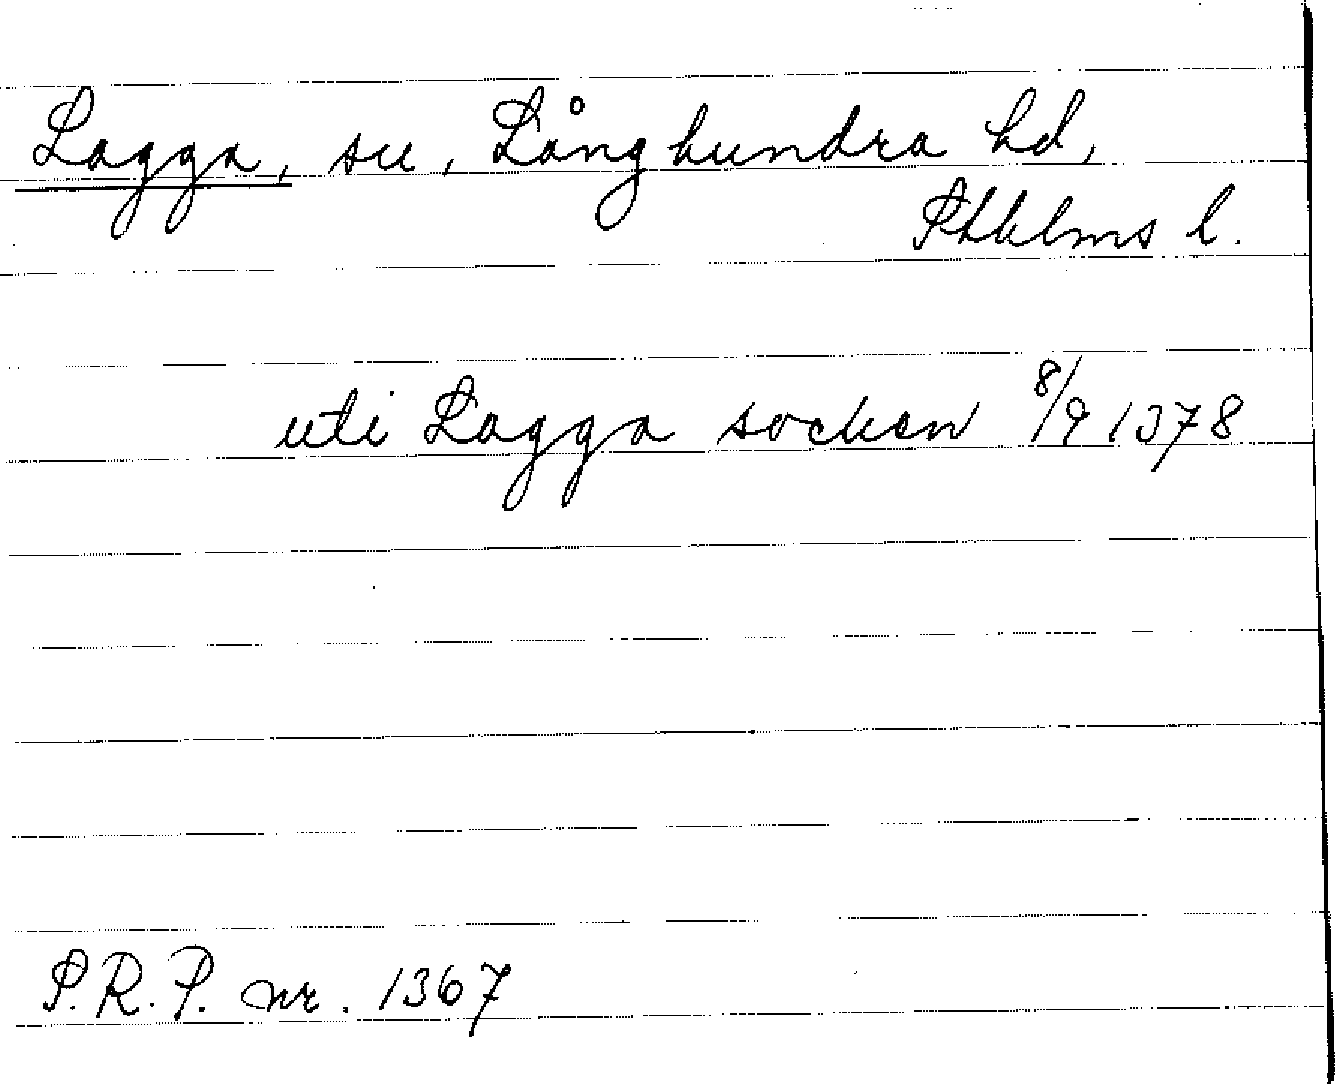 Lagga, sn, Långhundra hd,
Sthlms l.
uti Lagga socken 8/9 1378
S.R.P. nr. 1367